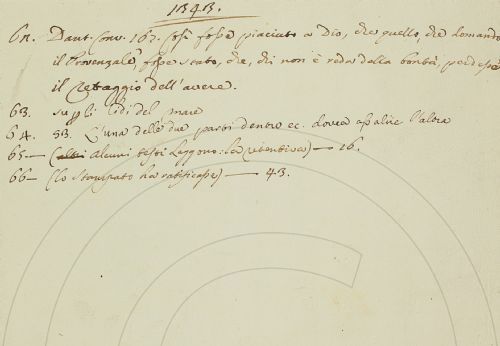 1343.
62. Dant. Conv. 163. così fosse piaciuto a Dio, che quello, che domandò
il Provenzale, fosse stato, che, chi non è reda della bontà, perdesse
il retaggio dell'avere.
63. sugli lidi del mare
64. 33. L'una delle due parti dentro ec. dovea assalir l'altra
65— ( alcuni testi leggono: la ) — 16.
66— (lo Stampato ha ratificasse) — 43.